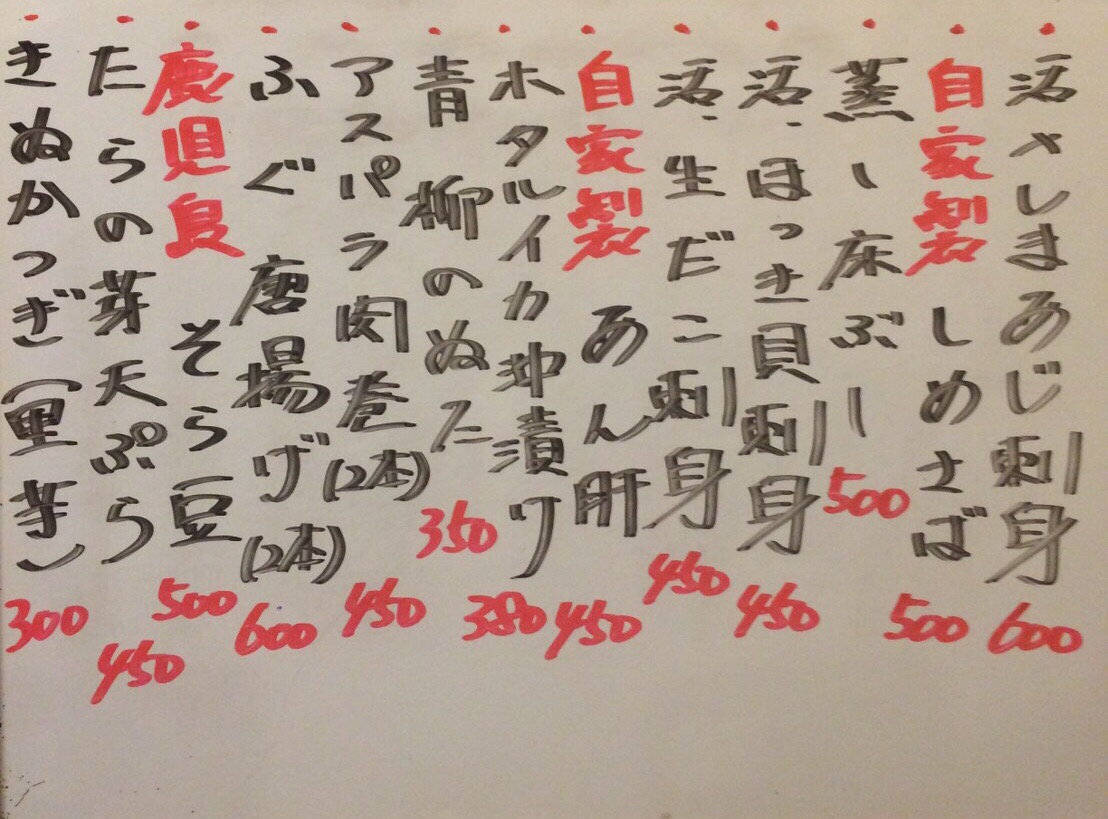 活〆しまあじ刺身 600
自家製 しめさば 500
蒸し床ぶし 500
活・ほっき貝刺身 450
活・生だこ刺身 450
自家製 あん肝 450
ホタルイカ沖漬け 380
青柳のぬた 350
アスパラ肉巻(2本) 450
ふぐ 唐揚げ(2本) 600
鹿児島 そら豆 500
たらの芽天ぷら 450
きぬかつぎ(里芋) 300